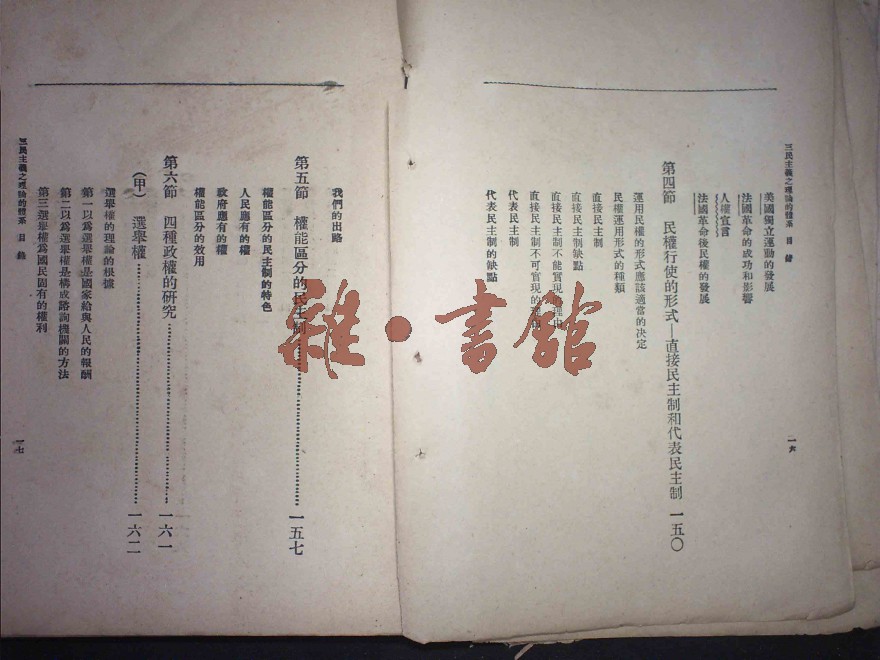 三民主義之理論的體系 目錄
一六
美國獨立運動的發展
法國革命的成功和影響
人權宣言
法國革命後民權的發展
第四節 民權行使的形式—直接民主制和代表民主制 一五〇
運用民權的形式應該適當的決定
民權運用形式的種類
直接民主制
直接民主制缺點
直接民主制不能實現的理由
直接民主制不可實現的理由
代表民主制
代表民主制的缺點
我們的出路
第五節 權能區分的民主制……………………一五七
權能區分的民主制的特色
人民應有的權
政府應有的權
權能區分的效用
第六節 四種政權的研究……………………一六一
(甲) 選舉權……………………一六二
選舉權的理論的根據
第一以爲選舉權是國家給與人民的報酬
第二以爲選舉權是構成諮詢機關的方法
第三選舉權爲國民固有的權利
三民主義之理論的體系 目錄
一七
雜·書館